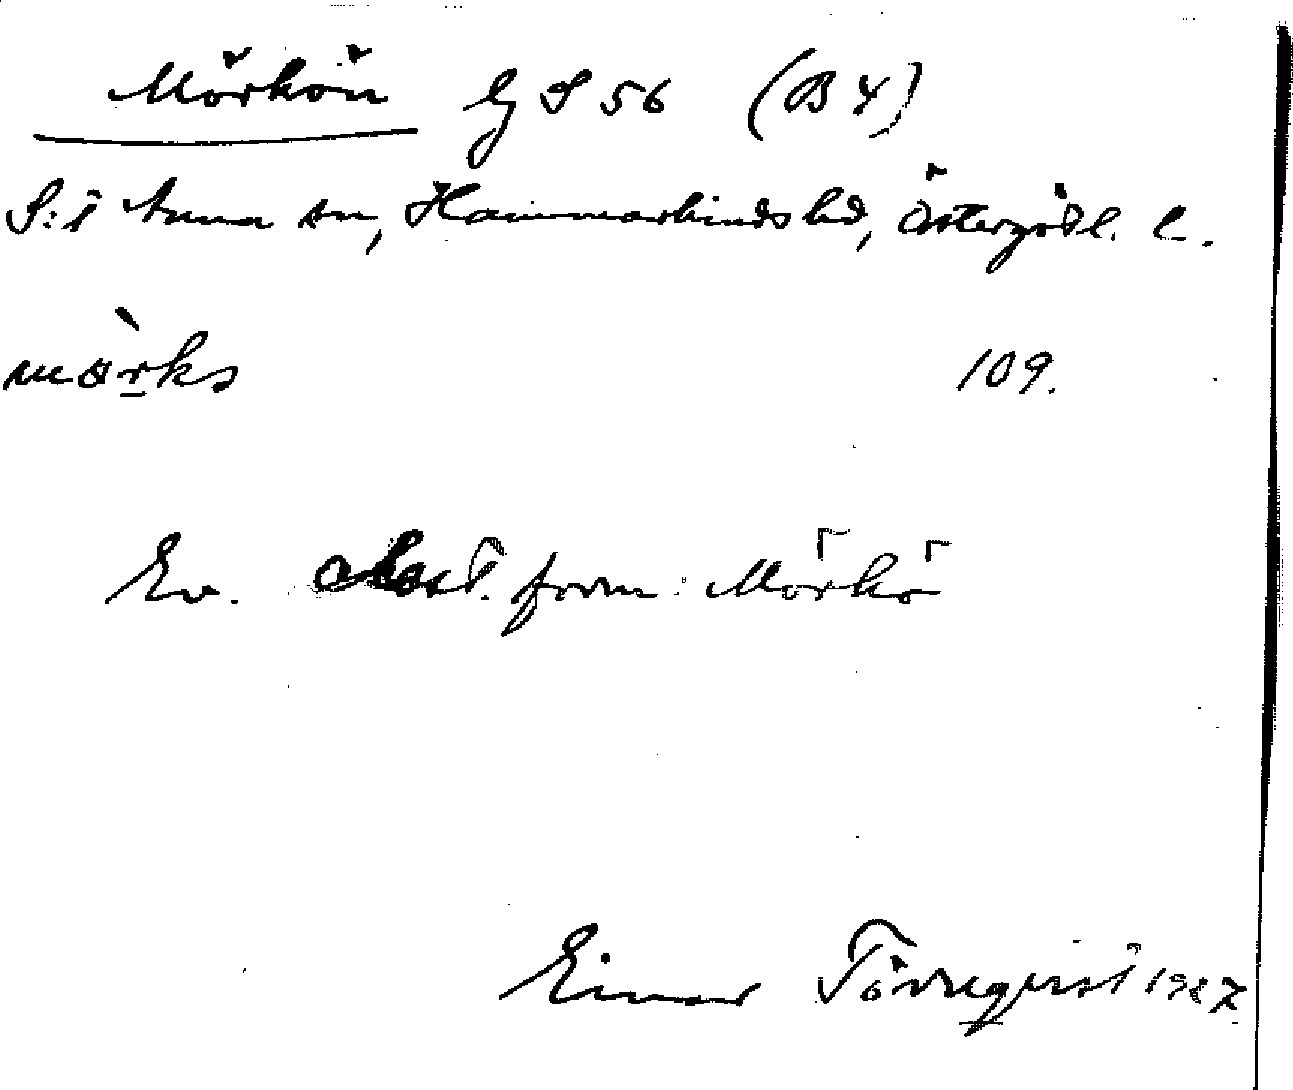 Mörkön Gj S 56 (B 4)
S:t Anna sn, Hammarkinds hd, Östergötl. l.
mörks 109.
Ev. form: Mörkö
Einar Törnqvist 1927